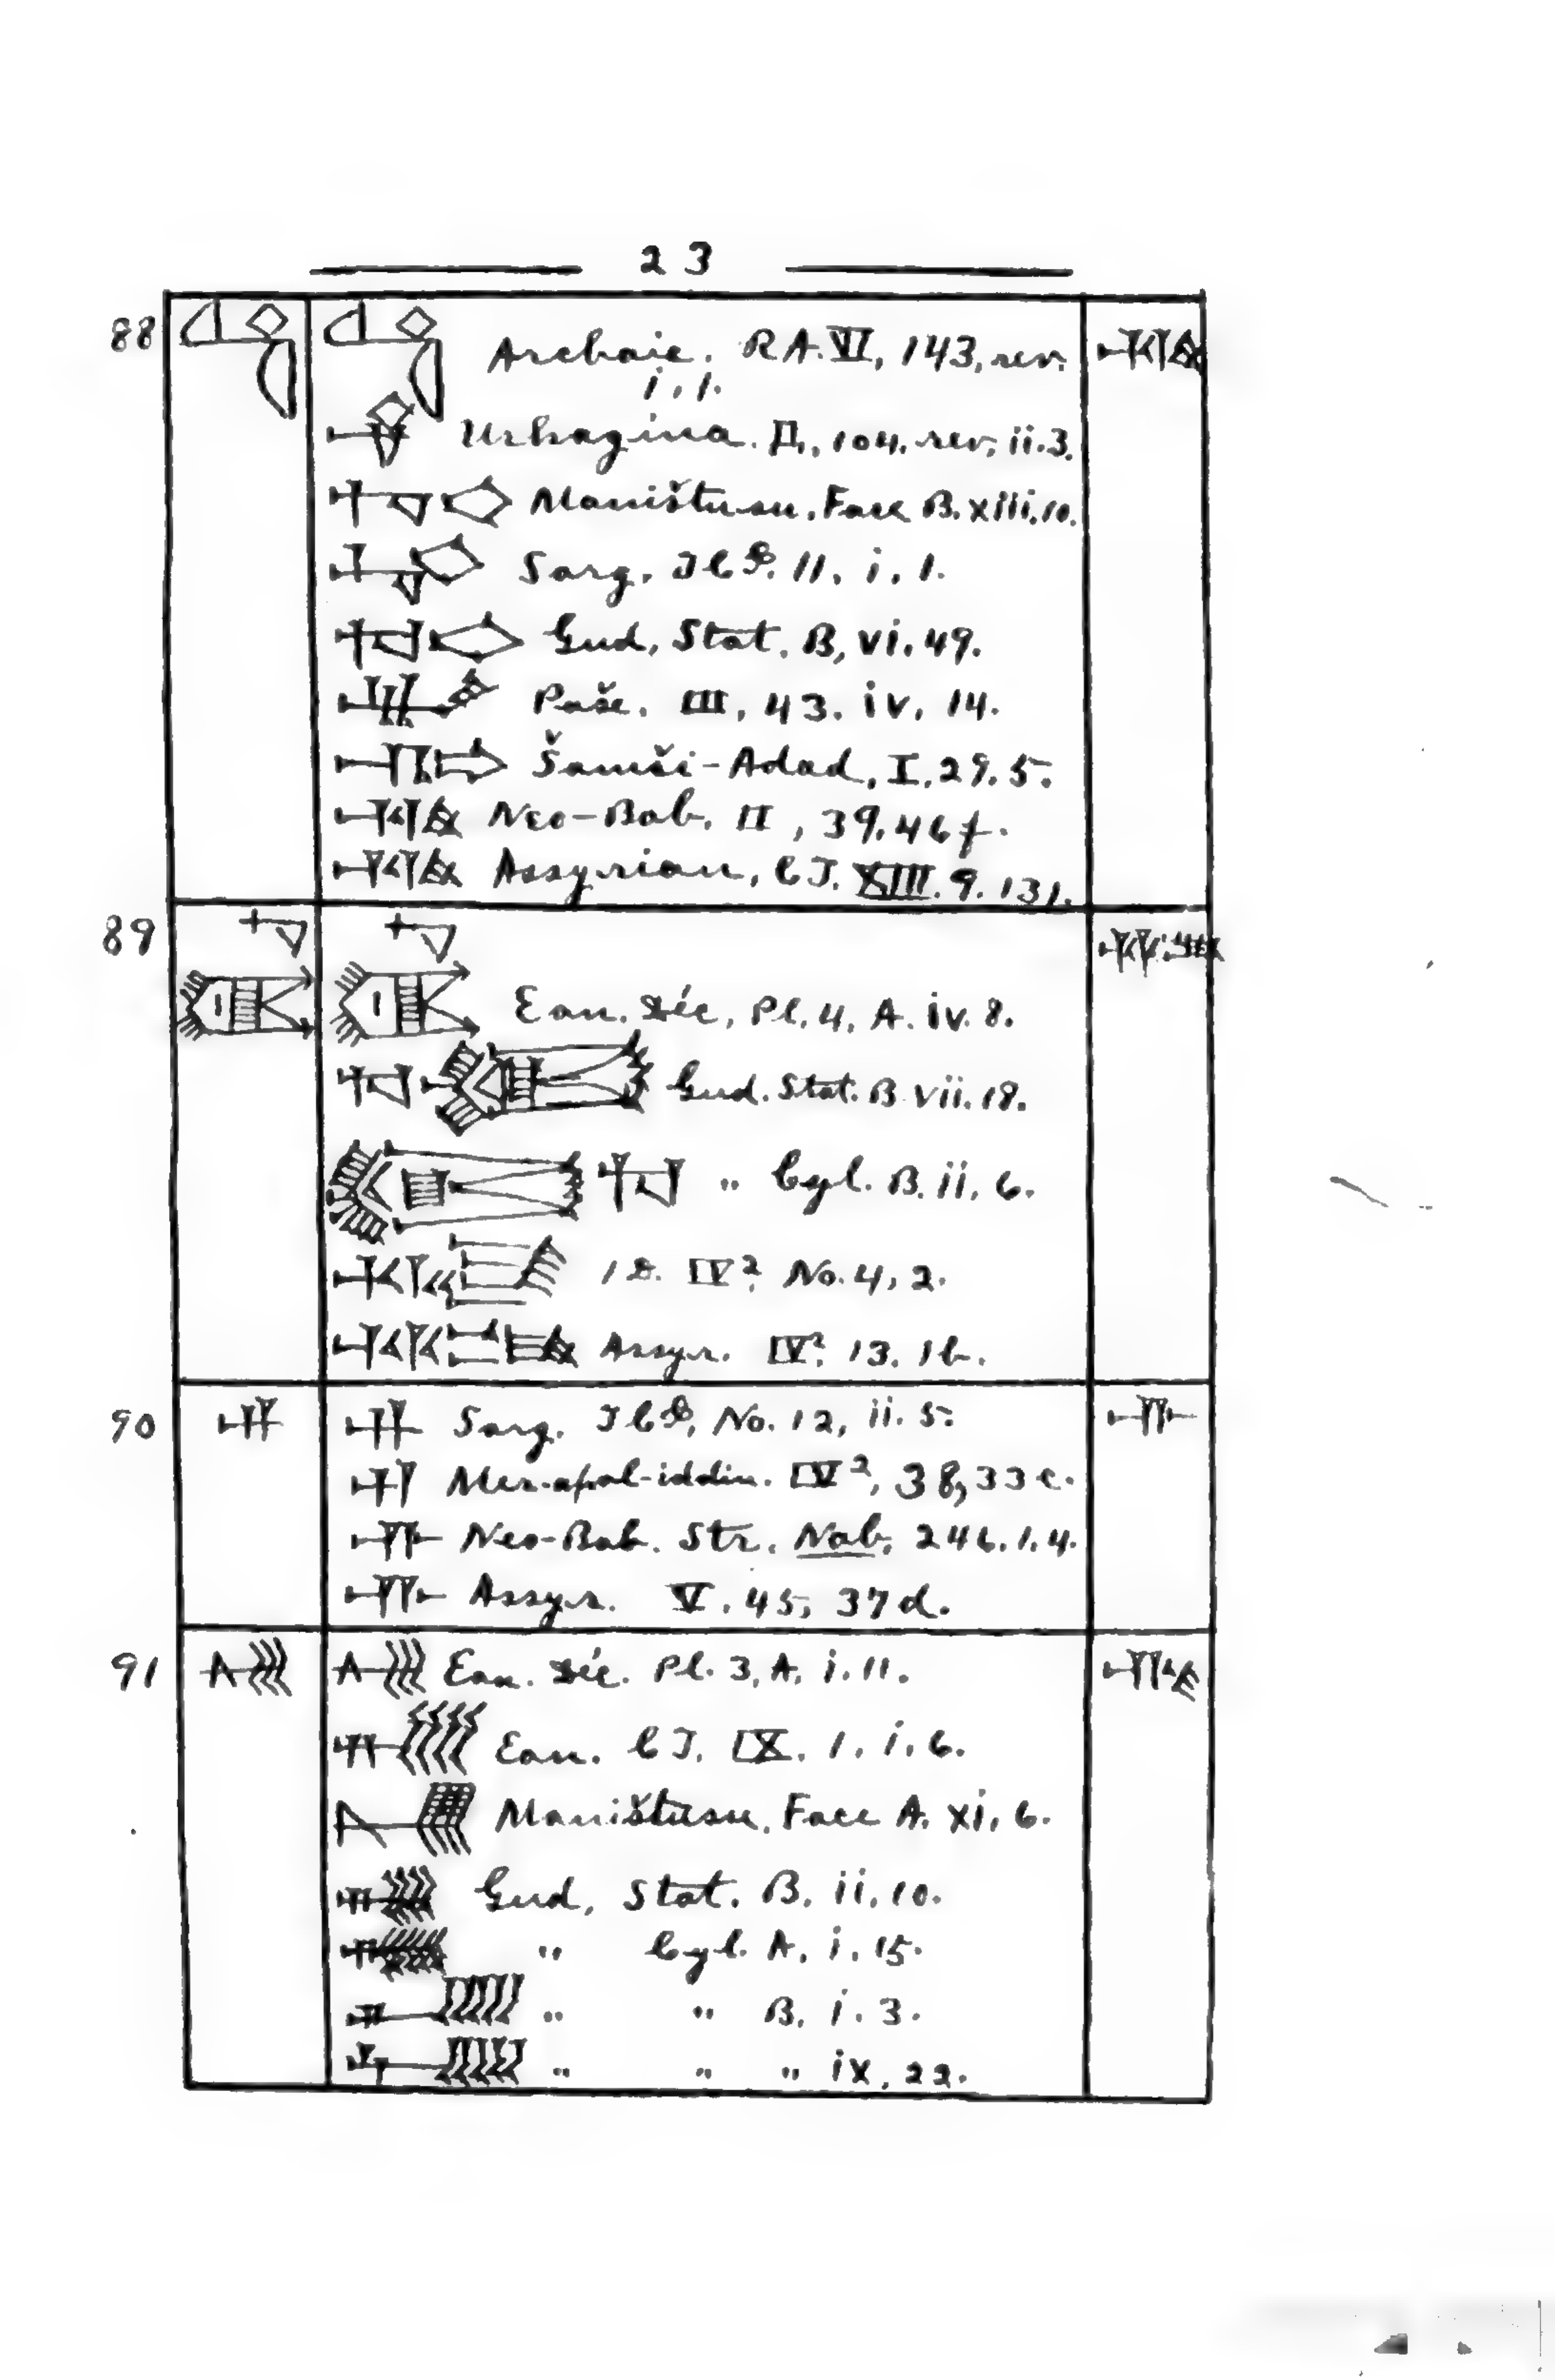 23
88 Archaic. RA. VI, 143, rev.
i, 1.
Urkagina. Д, 104. rev, ii. 3.
Maništusu. Face B. xiii, 10.
Sarg. 11, i, 1.
Gud, Stat. B, vi. 49.
Paše. III, 43. iv, 14.
Šamši-Adad, I, 29. 5.
Neo-Bab. II, 39, 46 f.
Assyrian, CT. XIII. 9. 131.
89
Ean. Déc, Pl. 4, A. iv. 8.
Gud. Stat. B vii. 18.
" Cyl. B. ii, 6.
IV² No. 4, 2.
Assyr. IV². 13. 1b.
90 Sarg. No. 12, ii. 5.
Mer-apal-iddin. IV², 38, 33 c.
Neo-Bab. Str. Nab. 246. 1. 4.
Assyr. V. 45, 37 d.
91 Ean. Déc. Pl. 3, A. i. 11.
Ean. CT. IX. 1. i. 6.
Maništusu. Face A. xi, 6.
Gud, Stat. B. ii, 10.
" Cyl. A. i. 15.
" " B. i. 3.
" " " ix, 22.